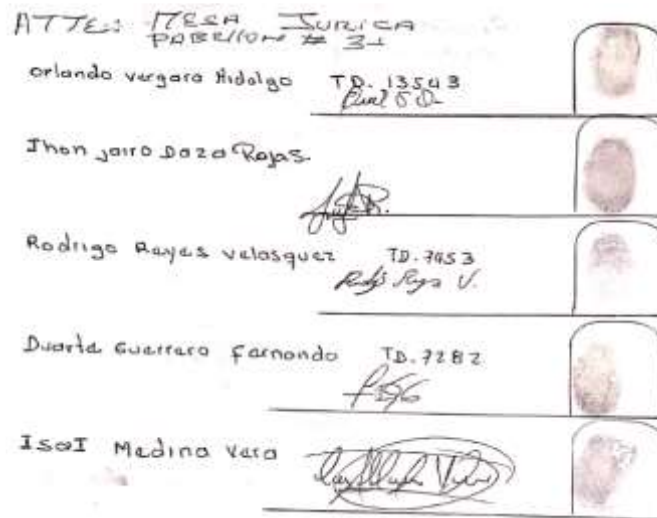 ATTE: MESA JURICA
PABELLON # 31
Orlando vergara Hidalgo TD. 13543
Jhon jairo Daza Rojas.
Rodrigo Reyes velasquez TD. 7453
Duarte Guerrero Fernando TD. 7282
IsaI Medina Vera